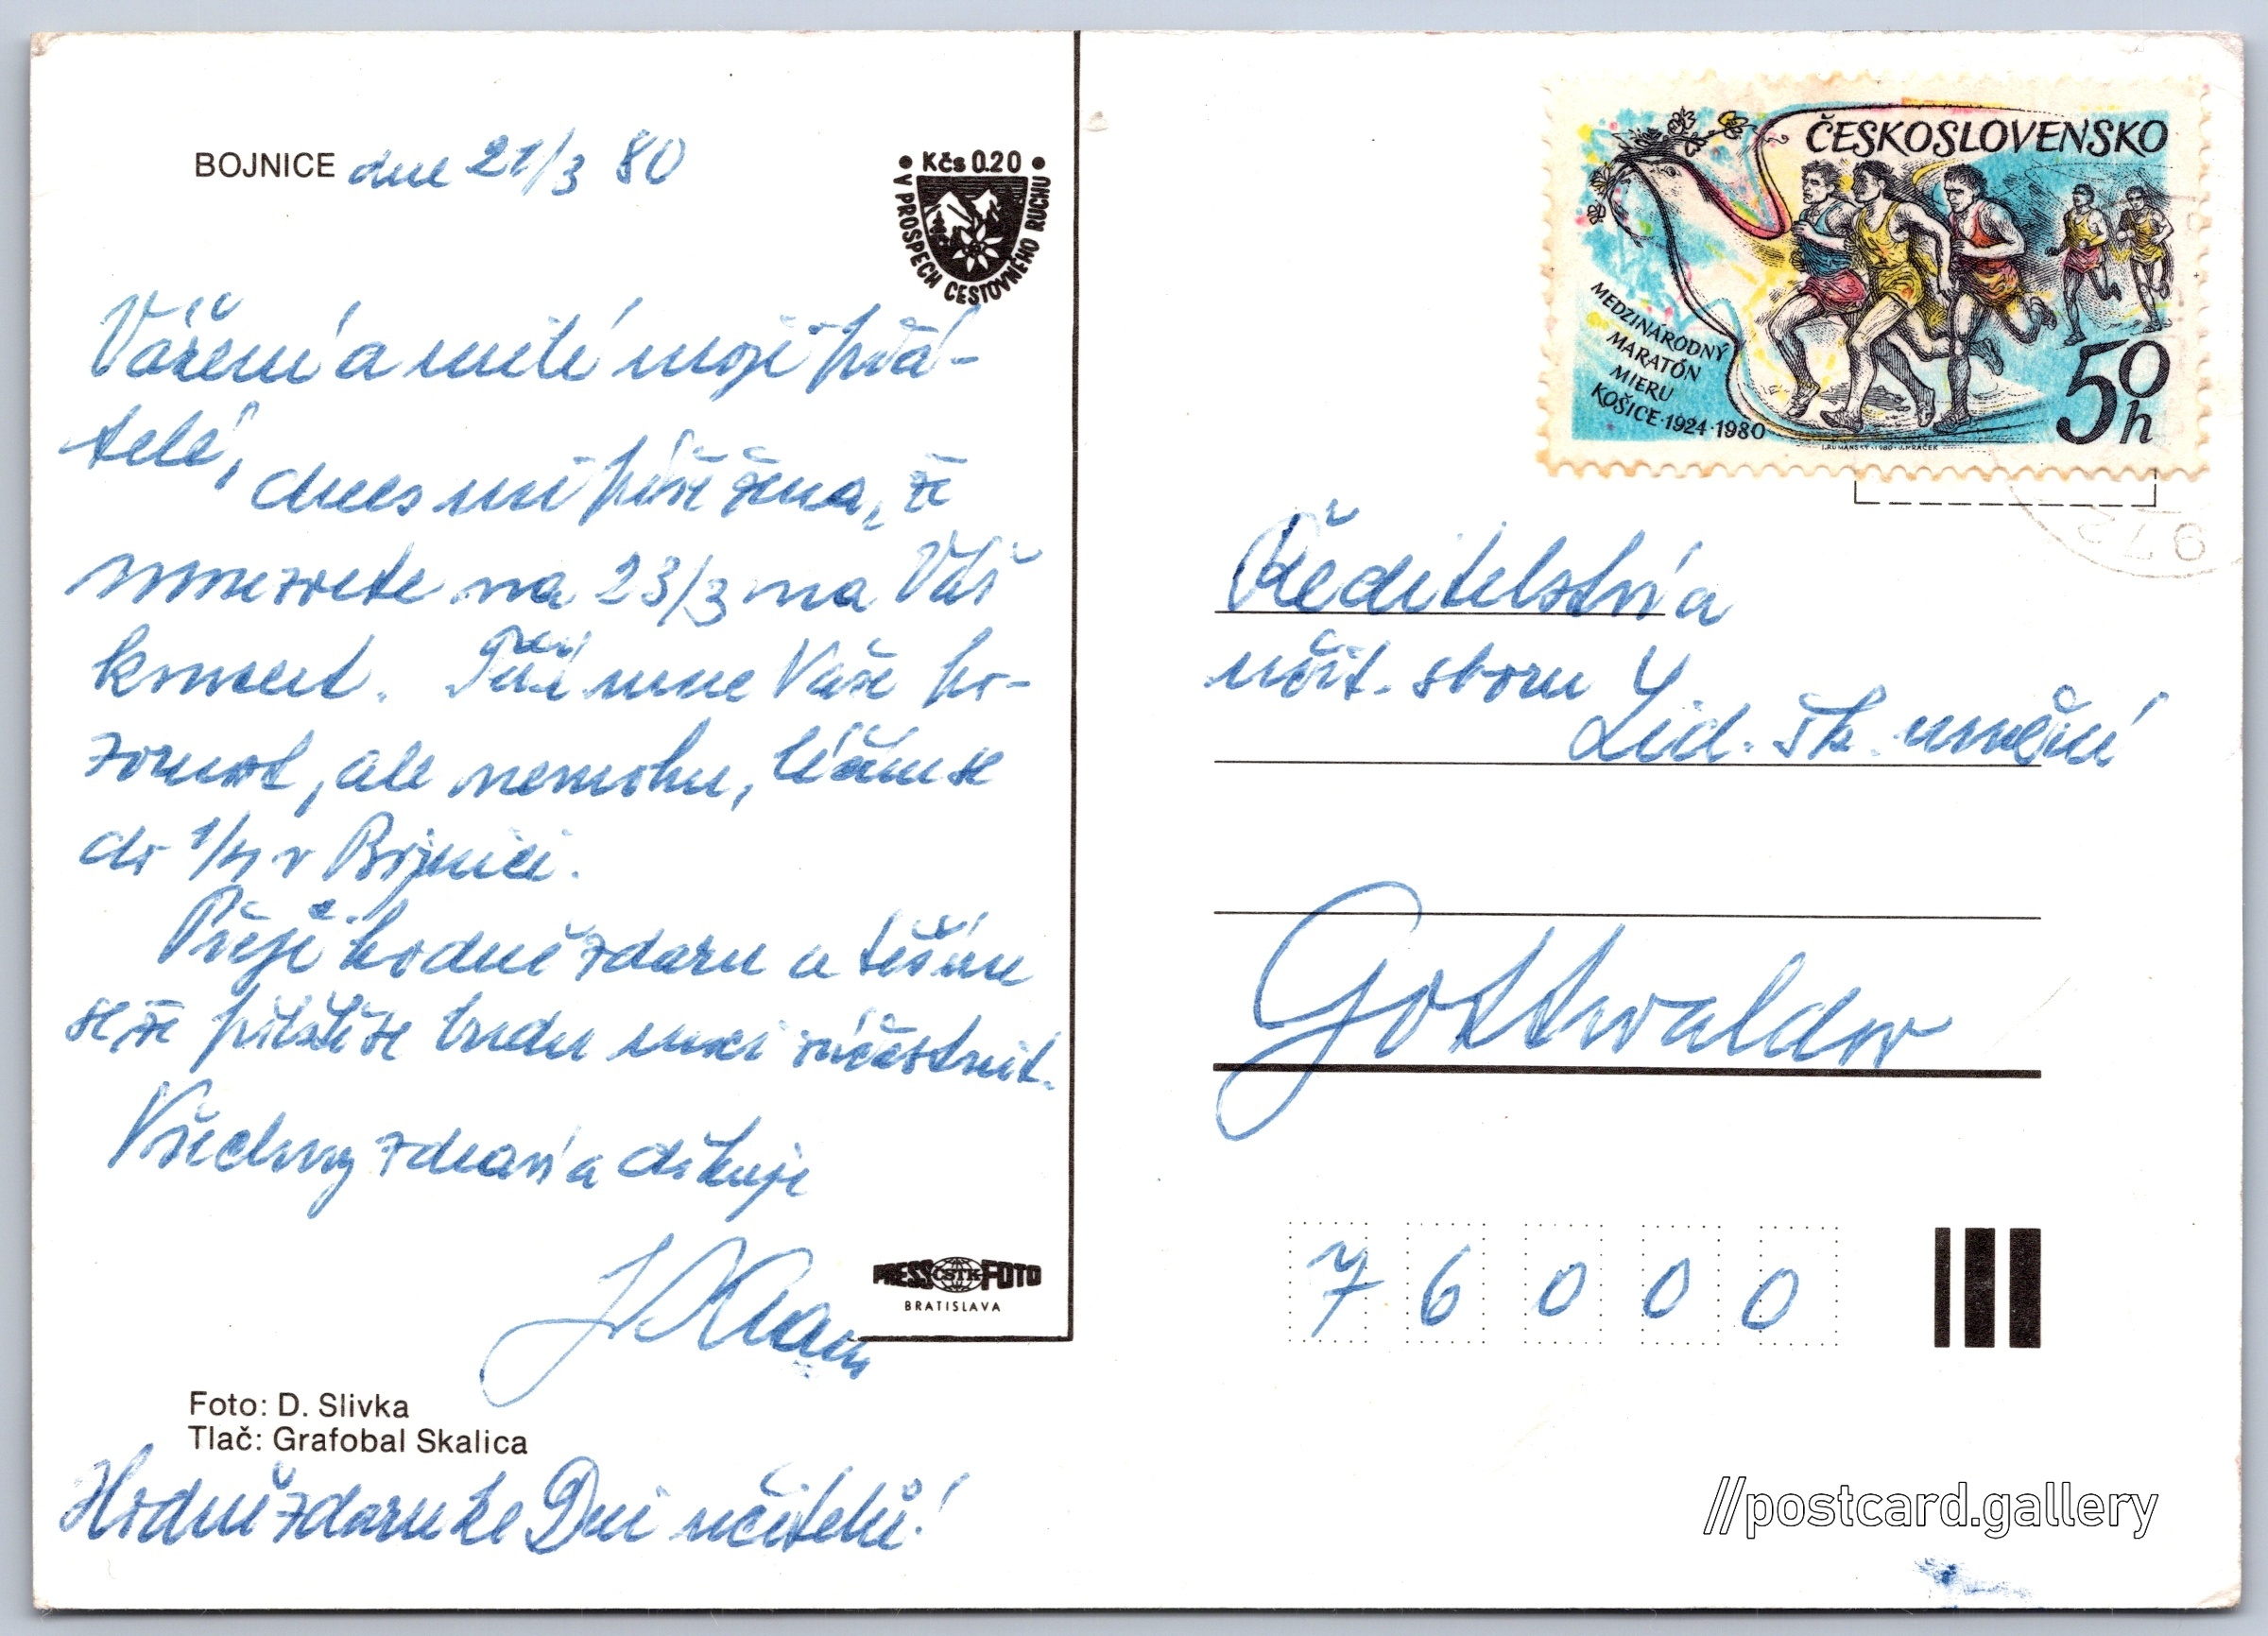 BOJNICE dne 21/3 80
• Kčs 0.20 •
V PROSPECH CESTOVNÉHO RUCHU
Vážení a milí moji přá-
telé,
dnes mi píše žena, že
mne zvete na 23/3 na Váš
koncert. Těší mne Vaše po-
zornost, ale nemohu, léčím se
do 1/4 v Bojnici.
Přeji hodně zdaru a těším
se, že příště se budu moci zúčastnit.
Všechny zdraví a děkuje
PRESS ČSTK FOTO
BRATISLAVA
Foto: D. Slivka
Tlač: Grafobal Skalica
Hodně zdaru ke Dni učitelů!
ČESKOSLOVENSKO
MEDZINÁRODNÝ
MARATÓN
MIERU
KOŠICE·1924·1980
50 h
I. RUMANSKÝ 1980 · J. MRÁČEK
972
Ředitelství a
učit. sboru
Lid. šk. umění
Gottwaldov
76000
//postcard.gallery